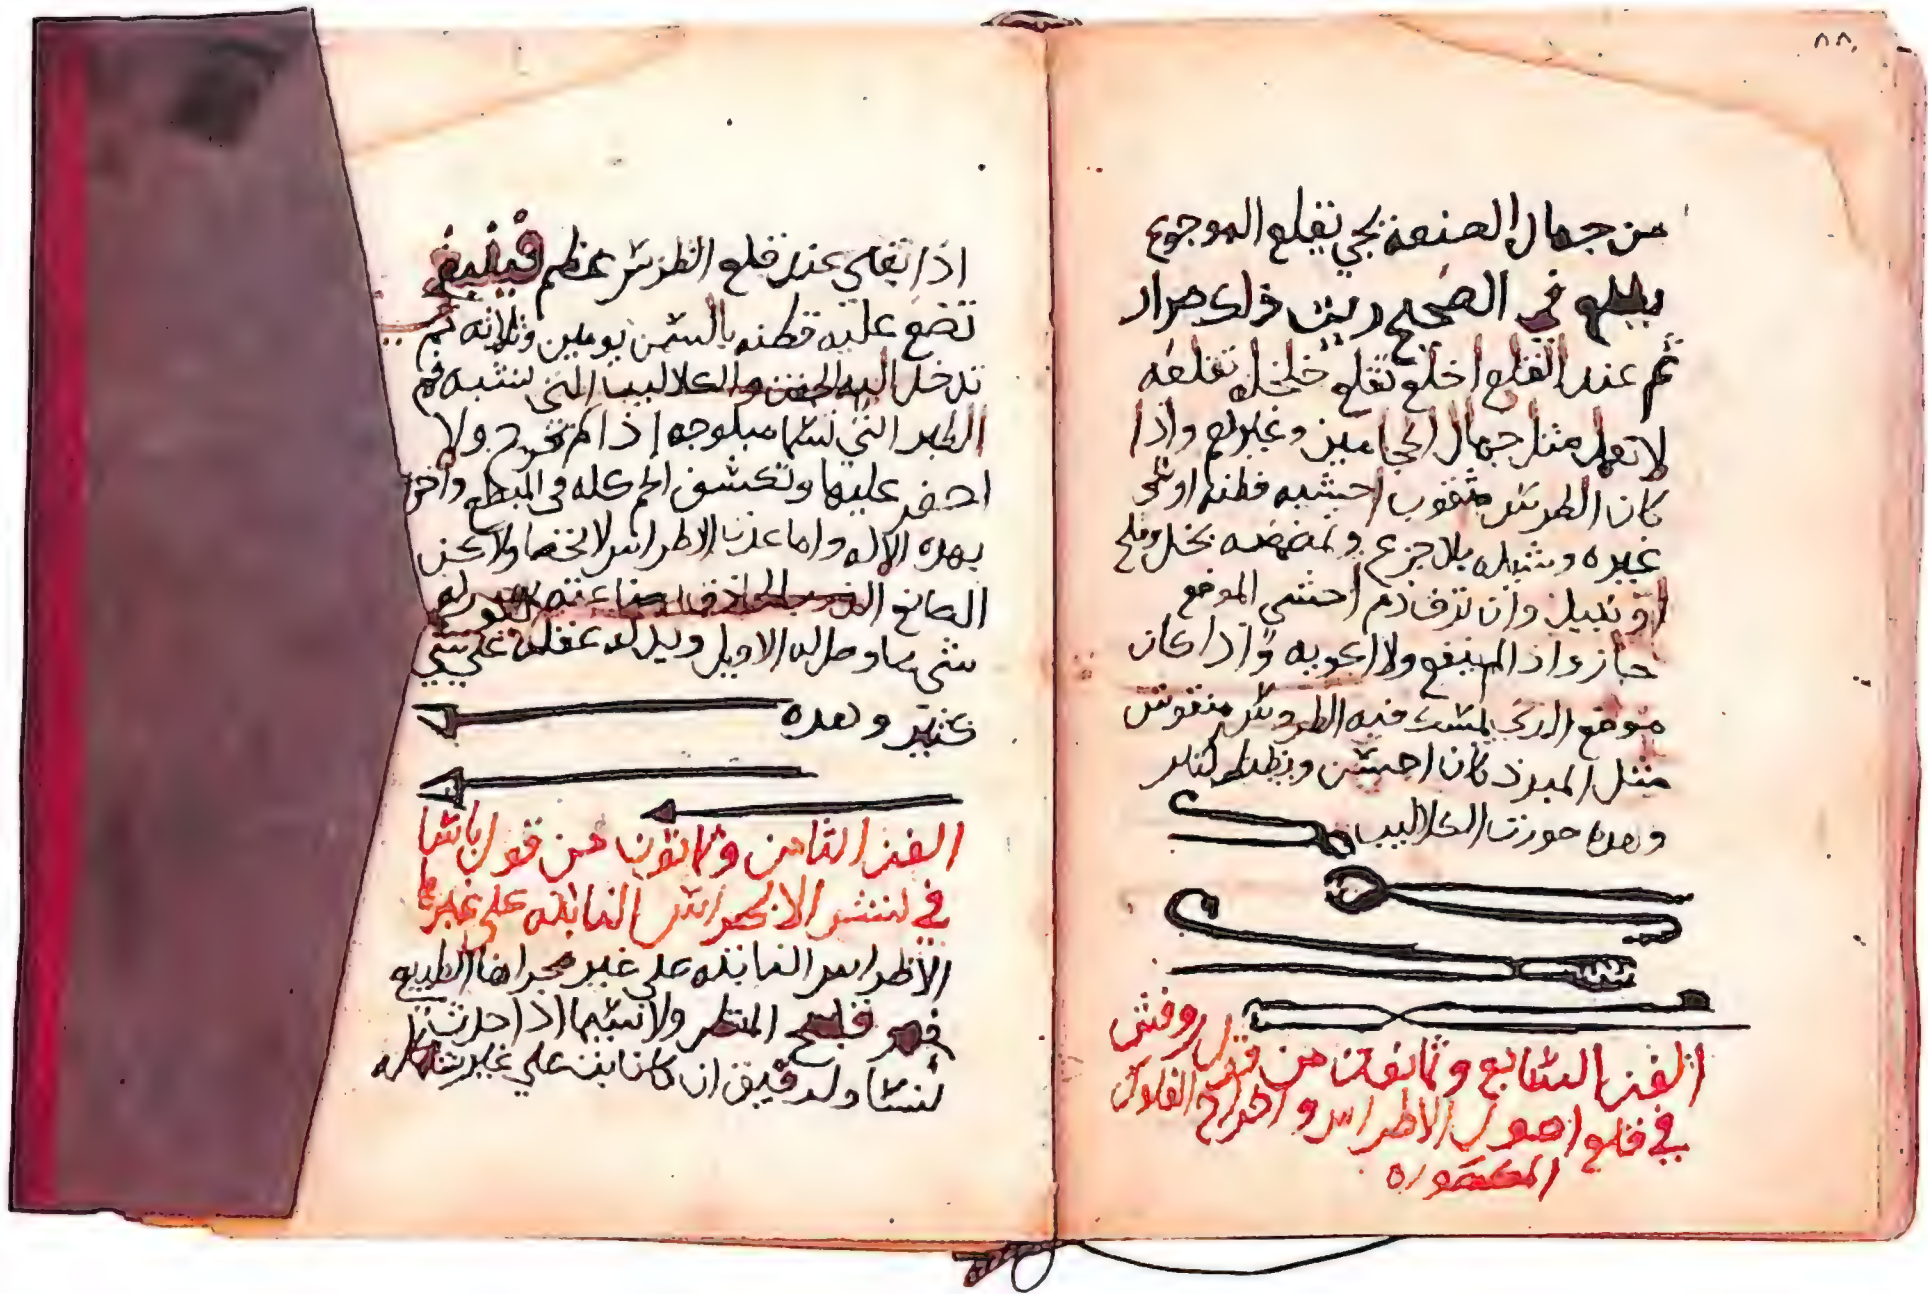 ٨٨
من جهال الصنعة يجي يقلع الموجوع
يقلع في الصحيح ريت ذلك مرار
ثم عند القلع اخلع تقلع خلخل تقلعه
لا تعمل مثل جهال الحجامين وغيرهم واذا
كان الطرس مثقوب احشيه قطنه او شي
غيره وشيله بلا جزع وتمضمضه بخل وملح
او نبيذ وان نزف دم احشي الموضع
جاز واذا لم ينفع ولا اكويه واذا كان
موضع الذي يمسك فيه الطروس منقوش
مثل المبرد كان احسن
وهده صورت الكلاليب
الفن السابع وثمانون من قول روفس
في قلع اصول الاطراس و اخراج الفكوك
المكسوره
اذا تبقى عند قلع الطرس عظم فينبغي
تضع عليه قطنه بالسمن يومين وثلاثه ثم
تدخل اليه الجفت والكلاليب التي تشبه فم
الطير التي تسما مبلوجه اذا لم تخرج ولا
احفر عليها وتكشف اللحم كله في المبضع
بهده الاله واما عدت الاطراس لا تخصا ولاكن
الصانع الحاذق بصناعته
شي مما وصل اليه الاويل ويدله عقله على شي
كثير وهده
الفن الثامن وثمانون من قول باشا
في نشر الاطراس النابته على غير
الاطراس النابته على غير مجراها الطبيع
فهو قبيح المنظر ولا سيما اذا حدث
لنسا ولرقيق ان كان نبت على غير